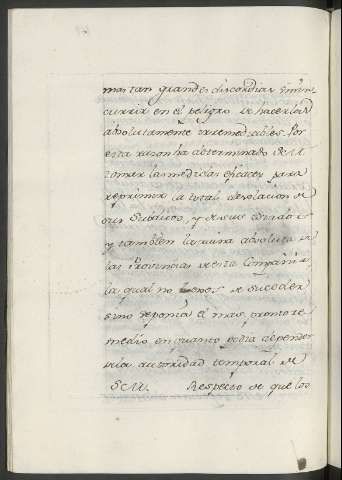 mas tan grandes discordias sin in-
currir en el peligro de hacerlas
absolutamente irremediables. Por
esta razon ha determinado S. M.
tomar las medidas eficaces para
reprimir la total desolacion de
sus Subditos, y de sus estados
y tambien la ruina absoluta de
las Provincias de esta Compañia
la qual no dexará de suceder
sino se ponia el mas pronto re-
medio en quanto podia depender
de la autoridad temporal de
S. M. Respecto de que los